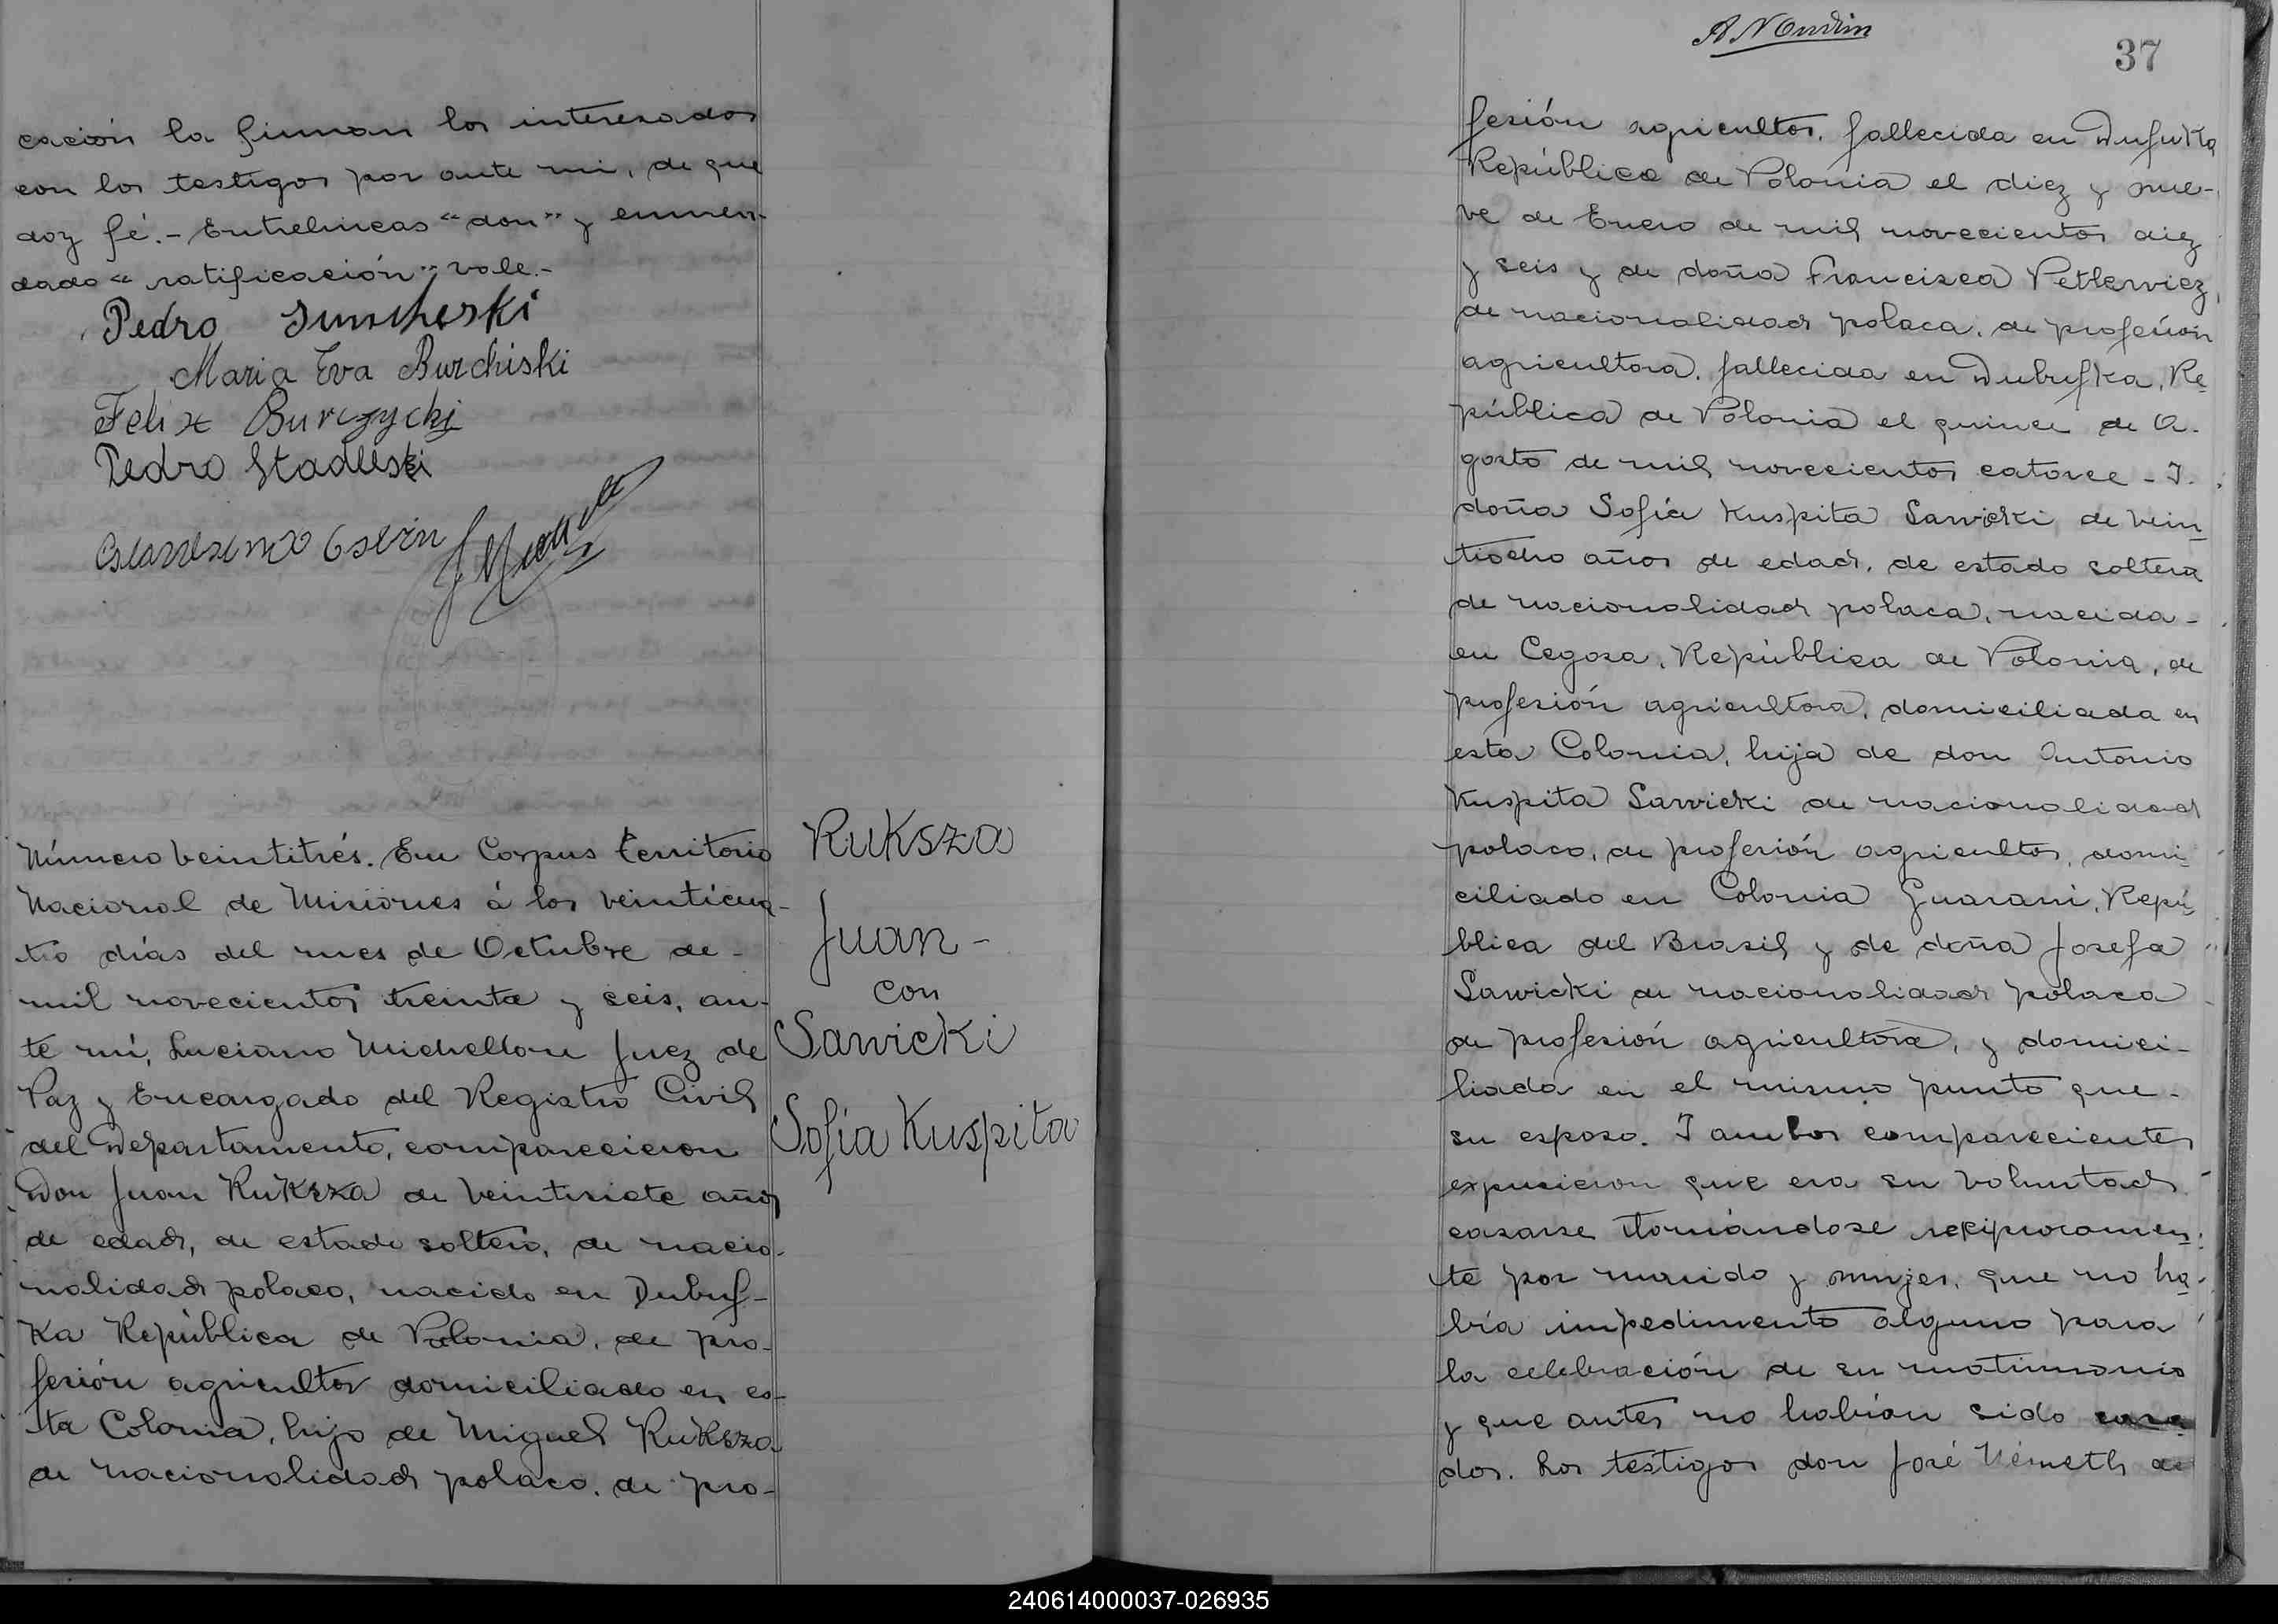 cación la firman los interesados
con los testigos por ante mi, de que
doy fé.- Entrelineas "don" y enmen-
dado "ratificación" vale.-
Pedro
Maria Eva Burchiski
Felix Burczycki
Pedro Stadleski
Número veintitrés. En Corpus territorio
Nacional de Misiones á los veinticua-
tro días del mes de Octubre de-
mil novecientos treinta y seis, an-
te mí, Luciano Michellone Juez de
Paz y Encargado del Registro Civil
del Departamento, comparecieron
Don Juan Ruksza de veintisiete años
de edad, de estado soltero, de nacio-
nalidad polaco, nacido en Dubuf-
ka República de Polonia, de pro-
fesión agricultor domiciliado en es-
ta Colonia, hijo de Miguel Ruksza
de nacionalidad polaco, de pro-
Ruksza
Juan-
con
Sawicki
Sofía Kuspita
37
fesión agricultor, fallecida en Dufuka
República de Polonia el diez y nue-
ve de Enero de mil novecientos diez
y seis y de doña Francisca Petlerviez,
de nacionalidad polaca, de profesión
agricultora, fallecida en Dubufka, Re
pública de Polonia el quince de A-
gosto de mil novecientos catorce - I
doña Sofía Kuspita Sawicki, de vein
tiocho años de edad, de estado soltera
de nacionalidad polaca, nacida-
en Cegosa, República de Polonia, de
profesión agricultora, domiciliada en
esta Colonia, hija de don Antonio
Kuspita Sawicki de nacionalidad
polaco, de profesión agricultor, domi-
ciliado en Colonia Guarani, Repú-
blica del Brasil y de doña Josefa
Sawicki de nacionalidad polaca
de profesión agricultora, y domici-
liada en el mismo punto que-
su esposo. I ambos comparecientes
expusieron que era su voluntad
casarse tomándose reciprocamen-
te por marido y mujer, que no ha-
bía impedimento alguno para
la celebración de su matrimonio
y que antes no habían sido casa
dos. Los testigos don José Németh de
240614000037-026935